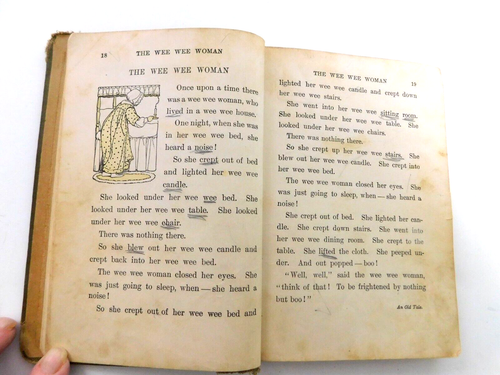 18
THE WEE WEE WOMAN
THE WEE WEE WOMAN
Once upon a time there
was a wee wee woman, who
lived in a wee wee house.
One night, when she was
in her wee wee bed, she
heard a noise!
So she crept out of bed
and lighted her wee wee
candle.
She looked under her wee wee bed. She
looked under her wee wee table. She looked
under her wee wee chair.
There was nothing there.
So she blew out her wee wee candle and
crept back into her wee wee bed.
The wee wee woman closed her eyes. She
was just going to sleep, when — she heard a
noise!
So she crept out of her wee wee bed and
THE WEE WEE WOMAN
19
lighted her wee wee candle and crept down
her wee wee stairs.
She went into her wee wee sitting room.
She looked under her wee wee table. She
looked under her wee wee chairs.
There was nothing there.
So she crept up her wee wee stairs. She
blew out her wee wee candle. She crept into
her wee wee bed.
The wee wee woman closed her eyes. She
was just going to sleep, when — she heard a
noise!
She crept out of bed. She lighted her can-
dle. She crept down stairs. She went into
her wee wee dining room. She crept to the
table. She lifted the cloth. She peeped un-
der. And out popped — boo!
"Well, well," said the wee wee woman,
"think of that! To be frightened by nothing
but boo!"
An Old Tale.